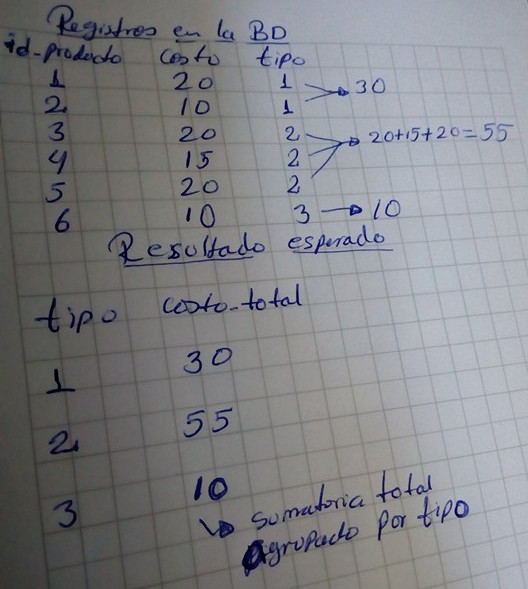 Registros en la BD
id-producto costo tipo
1 20 1 → 30
2 10 1
3 20 2 → 20+15+20=55
4 15 2
5 20 2
6 10 3 → 10
Resultado esperado
tipo costo-total
1 30
2 55
3 10
↳ sumatoria total
Agrupado por tipo